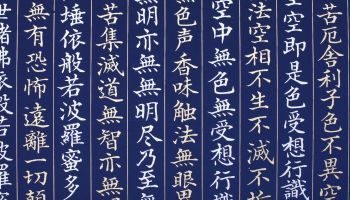 苦厄舎利子色不異空
空即是色受想行識
法空相不生不滅不垢
空中色無受想行識
色声香味触法無眼界
無明亦無無明尽乃至
苦集滅道無智亦無
埵依般若波羅蜜多
無有恐怖遠離一切顛
世諸佛依般若波羅